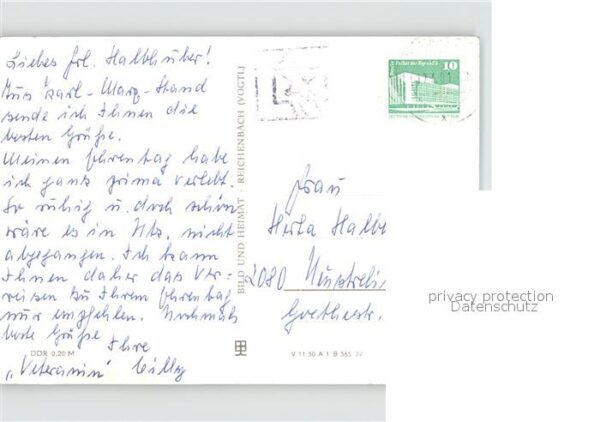 Liebes Frl. Halbhuber!
Aus Karl-Marx-Stand
sende ich Ihnen die
besten Grüße.
Meinen Ehrentag habe
ich ganz prima verlebt.
So ruhig u. doch schön
wäre es in Ntz. nicht
abgegangen. Ich kann
Ihnen daher das Ver-
reisen zu Ihrem Ehrentag
nur empfehlen. Nochmals
beste Grüße
Ihre
"Veteranin" Cilly
DDR 0,20 M
BILD UND HEIMAT · REICHENBACH (VOGTL)
V 11 50 A 1 B 565
10
Frau
Herta Halb
2080 Neustreli
Goethestr.
privacy protection
Datenschutz